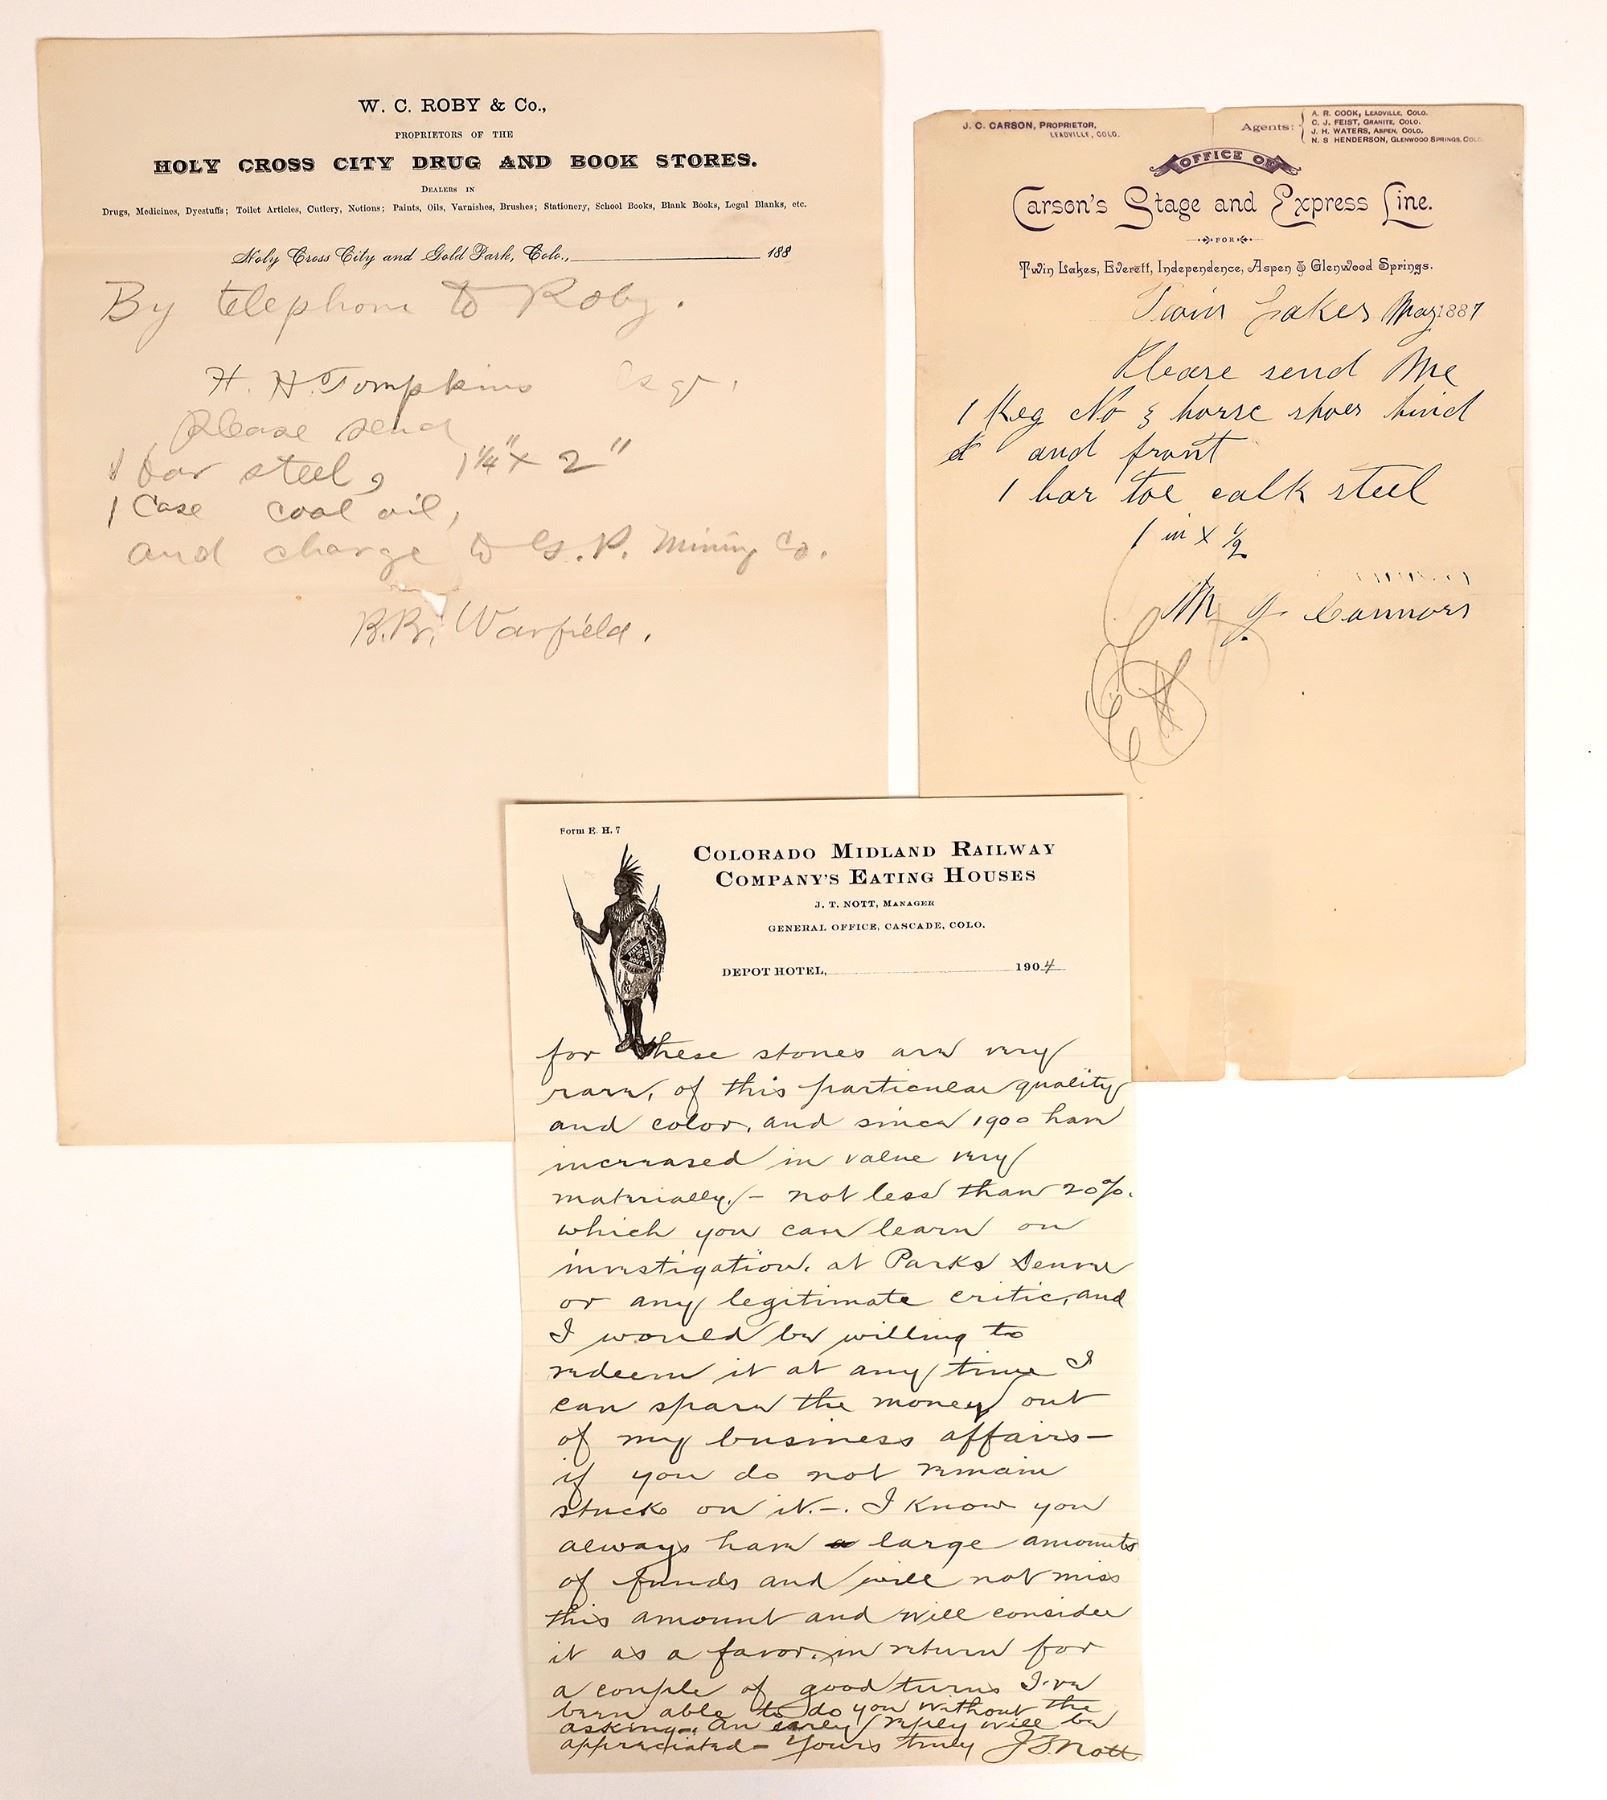 W. C. ROBY & Co.,
PROPRIETORS OF THE
HOLY CROSS CITY DRUG AND BOOK STORES.
DEALERS IN
Drugs, Medicines, Dyestuffs; Toilet Articles, Cutlery, Notions; Paints, Oils, Varnishes, Brushes; Stationery, School Books, Blank Books, Legal Blanks, etc.
Holy Cross City and Gold Park, Colo., 188
By telephone to Roby.
H. H. Tompkins Esqr.
Please send
1 bar steel, 1¼" x 2"
1 Case coal oil,
and charge to G. P. Mining Co.
B.B. Warfield.
J. C. CARSON, PROPRIETOR,
LEADVILLE, COLO.
Agents:
A. R. COOK, LEADVILLE, COLO.
C. J. FEIST, GRANITE, COLO.
J. H. WATERS, ASPEN, COLO.
N. S HENDERSON, GLENWOOD SPRINGS, COLO.
OFFICE OF
Carson's Stage and Express Line.
FOR
Twin Lakes, Everett, Independence, Aspen & Glenwood Springs.
Twin Lakes May 1887
Please send Me
1 Keg No 3 horse shoes hind
& and front
1 bar toe calk steel
1 in x ½
M J Connors
Form E. H. 7
COLORADO MIDLAND RAILWAY
COMPANY'S EATING HOUSES
J. T. NOTT, MANAGER
GENERAL OFFICE, CASCADE, COLO.
DEPOT HOTEL, 1904
for these stones are very
rare, of this particular quality
and color, and since 1900 have
increased in value very
materially,- not less than 20%.
which you can learn on
investigation, at Parks Denver
or any legitimate critic, and
I would be willing to
redeem it at any time I
can spare the money out
of my business affairs-
if you do not remain
stuck on it.-. I know you
always have a large amounts
of funds and will not miss
this amount and will consider
it as a favor, in return for
a couple of good turns I've
been able to do you without the
asking-. an early reply will be
appreciated- Yours truly J T Nott